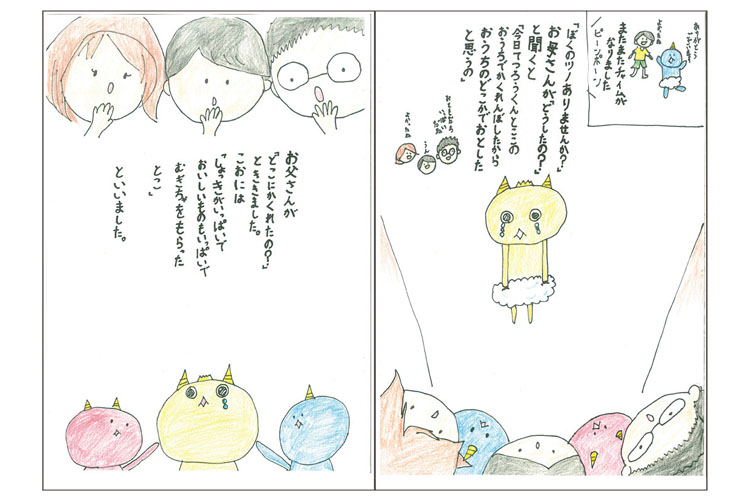 ありがとう
ございます
よかったね
またまたチャイムが
なりました
ピーンポーン
「ぼくのツノありませんか?」
お母さんが「どうしたの?」
と聞くと
「今日てつろうくんとここの
おうちでかくれんぼしたから
おうちのどこかでおとした
と思うの」
おともだち
いっぱい
だね
うん
よかったね
お父さんが
「どこにかくれたの?」
とききました。
こおには
「しょっきがいっぱいで
おいしいものもいっぱいで
むぎちゃをもらった
とこ」
といいました。